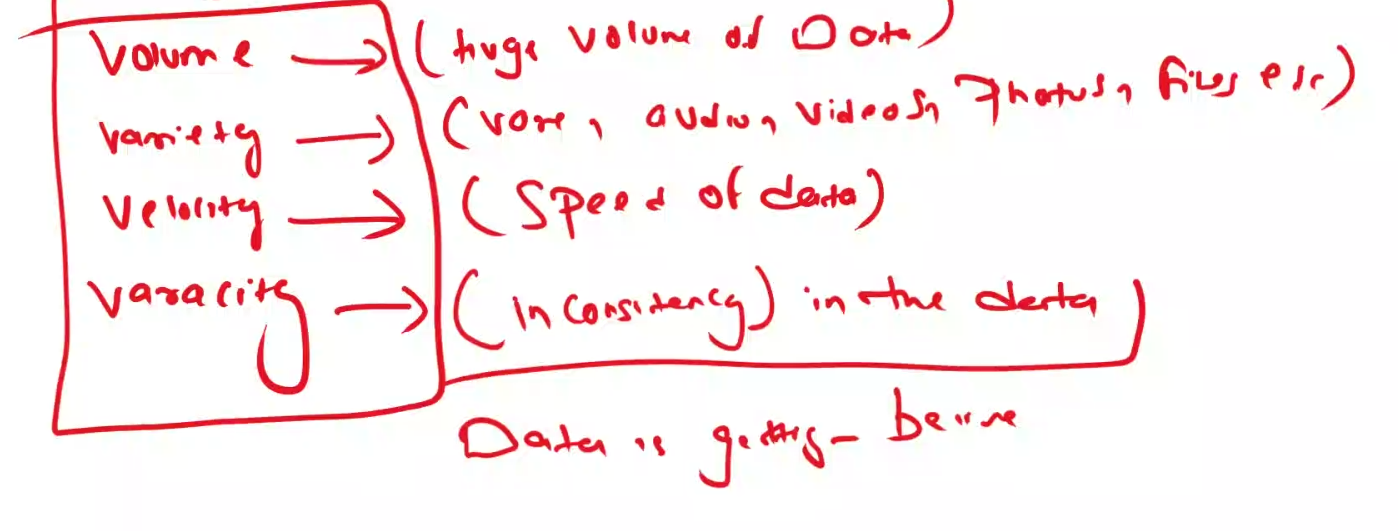 Volume → (huge Volume of Data)
Variety → (, audio, Videos, Photos, files etc)
Velocity → (Speed of data)
Varacity → (inconsitency) in the data
Data is getting